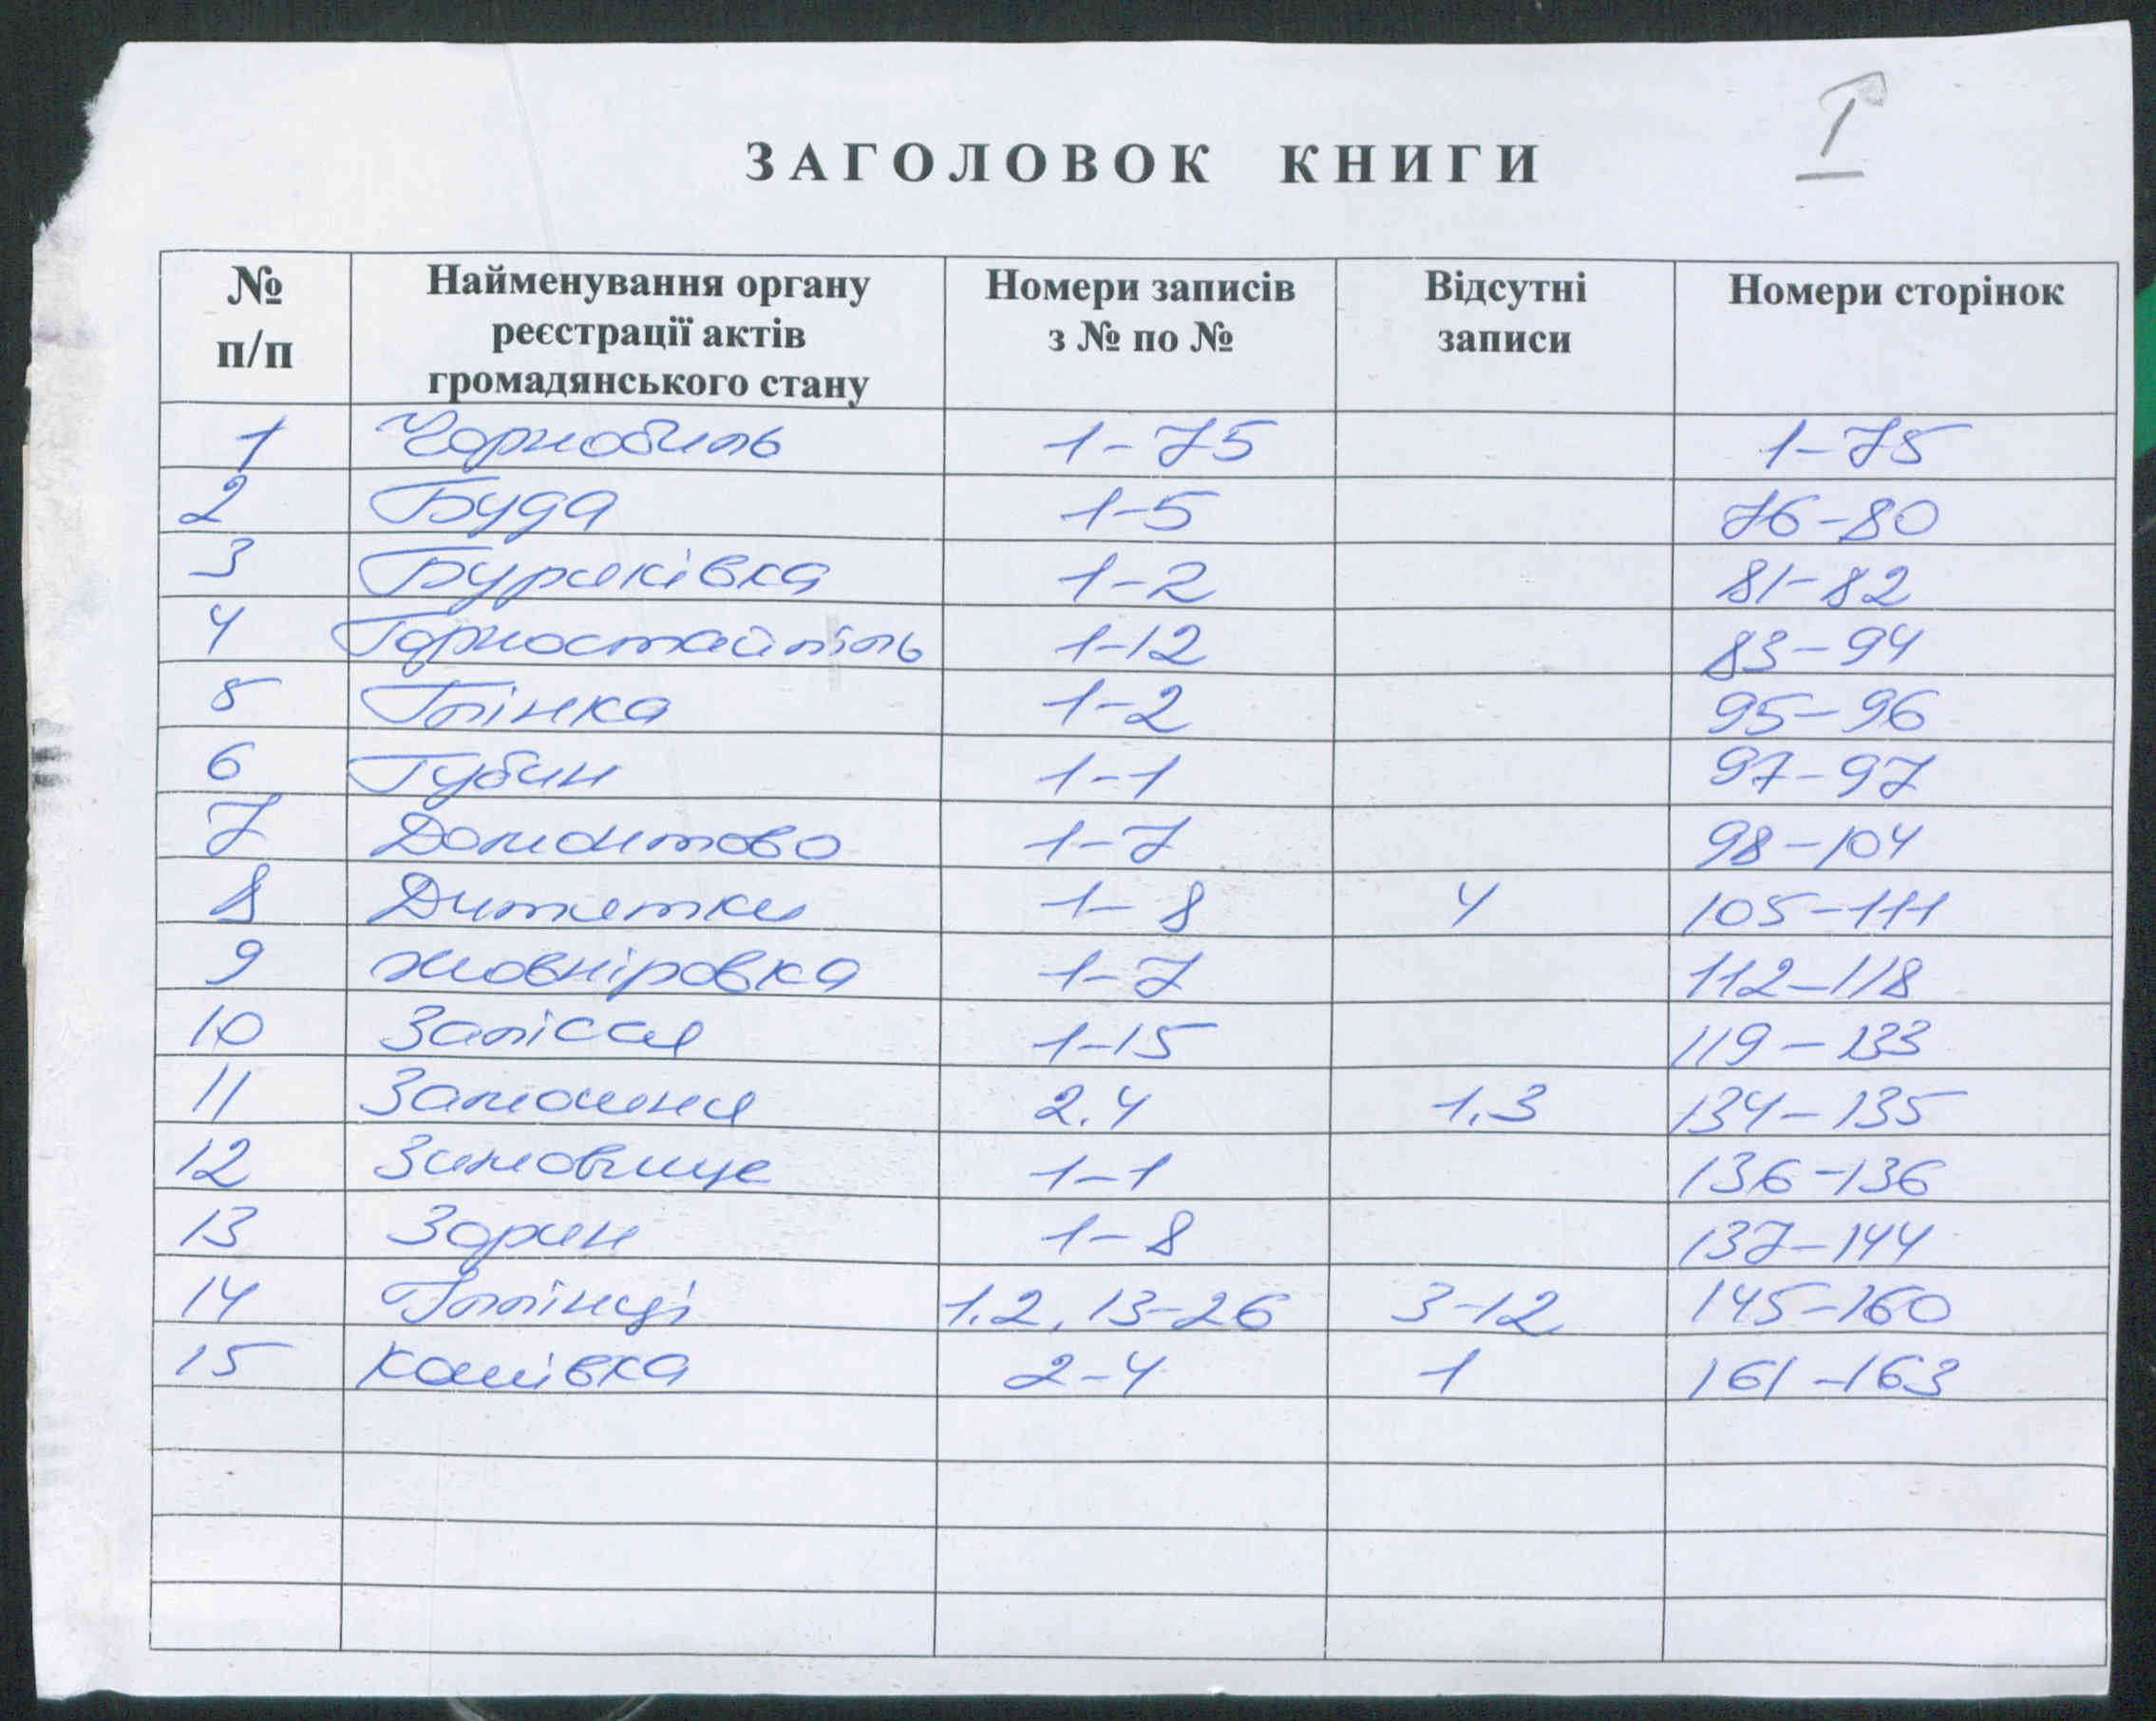 1
ЗАГОЛОВОК КНИГИ
№ п/п Найменування органу реєстрації актів громадянського стану Номери записів з № по № Відсутні записи Номери сторінок
1 Чорнобиль 1-75 1-75
2 Буда 1-5 76-80
3 Буряківка 1-2 81-82
4 Горностайпіль 1-12 83-94
5 Глінка 1-2 95-96
6 Губин 1-1 97-97
7 Домонтово 1-7 98-104
8 Дитятки 1-8 4 105-111
9 Жовніровка 1-7 112-118
10 Залісся 1-15 119-133
11 Замошня 2.4 1.3 134-135
12 Зимовище 1-1 136-136
13 Зорин 1-8 137-144
14 Іллінці 1.2, 13-26 3-12 145-160
15 Кошівка 2-4 1 161-163